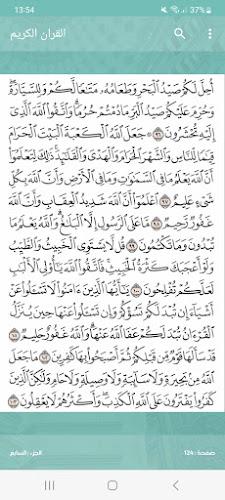 13:54
37%
القران الكريم
أُحِلَّ لَكُمْ صَيْدُ الْبَحْرِ وَطَعَامُهُ مَتَاعًا لَّكُمْ وَلِلسَّيَّارَةِ
وَحُرِّمَ عَلَيْكُمْ صَيْدُ الْبَرِّ مَا دُمْتُمْ حُرُمًا وَاتَّقُوا اللَّهَ الَّذِي
إِلَيْهِ تُحْشَرُونَ ٩٦ جَعَلَ اللَّهُ الْكَعْبَةَ الْبَيْتَ الْحَرَامَ
قِيَامًا لِّلنَّاسِ وَالشَّهْرَ الْحَرَامَ وَالْهَدْيَ وَالْقَلَائِدَ ذَٰلِكَ لِتَعْلَمُوا
أَنَّ اللَّهَ يَعْلَمُ مَا فِي السَّمَاوَاتِ وَمَا فِي الْأَرْضِ وَأَنَّ اللَّهَ بِكُلِّ
شَيْءٍ عَلِيمٌ ٩٧ اعْلَمُوا أَنَّ اللَّهَ شَدِيدُ الْعِقَابِ وَأَنَّ اللَّهَ
غَفُورٌ رَّحِيمٌ ٩٨ مَّا عَلَى الرَّسُولِ إِلَّا الْبَلَاغُ وَاللَّهُ يَعْلَمُ مَا
تُبْدُونَ وَمَا تَكْتُمُونَ ٩٩ قُل لَّا يَسْتَوِي الْخَبِيثُ وَالطَّيِّبُ
وَلَوْ أَعْجَبَكَ كَثْرَةُ الْخَبِيثِ فَاتَّقُوا اللَّهَ يَا أُولِي الْأَلْبَابِ
لَعَلَّكُمْ تُفْلِحُونَ ١٠٠ يَا أَيُّهَا الَّذِينَ آمَنُوا لَا تَسْأَلُوا عَنْ
أَشْيَاءَ إِن تُبْدَ لَكُمْ تَسُؤْكُمْ وَإِن تَسْأَلُوا عَنْهَا حِينَ يُنَزَّلُ
الْقُرْآنُ تُبْدَ لَكُمْ عَفَا اللَّهُ عَنْهَا وَاللَّهُ غَفُورٌ حَلِيمٌ ١٠١
قَدْ سَأَلَهَا قَوْمٌ مِّن قَبْلِكُمْ ثُمَّ أَصْبَحُوا بِهَا كَافِرِينَ ١٠٢ مَا جَعَلَ
اللَّهُ مِن بَحِيرَةٍ وَلَا سَائِبَةٍ وَلَا وَصِيلَةٍ وَلَا حَامٍ وَلَٰكِنَّ الَّذِينَ
كَفَرُوا يَفْتَرُونَ عَلَى اللَّهِ الْكَذِبَ وَأَكْثَرُهُمْ لَا يَعْقِلُونَ ١٠٣
صفحة : 124
الجزء السابع